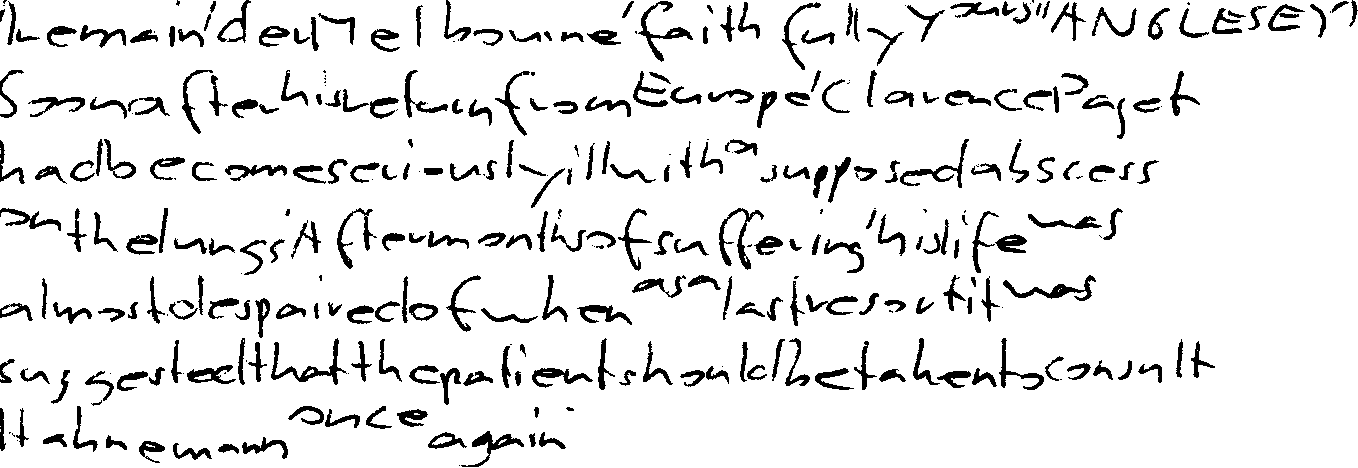 'I remain' dear Melbourne' faithfully yours" ANGLESEY'"
Soon after his return from Europe' Clarence Paget
had become seriously ill with a supposed abscess
on the lungs' After months of suffering' his life was
almost despaired of when as a last resort it was
suggested that the patient should be taken to consult
Hahnemann once again